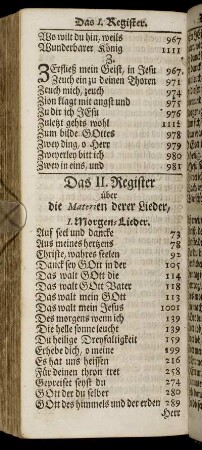 Das I. Register.
Wo wilt du hin, weils 967
Wunderbarer König 1111
Z.
Zerfließ mein Geist, in Jesu 967
Zeuch ein zu deinen Thoren 971
Zeuch mich, zeuch 974
Zion klagt mit angst und 975
Zu dir ich JEsu 976
Zuletzt gehts wohl 1112
Zum bilde GOttes 978
Zwey ding, o HErr 979
Zweyerley bitt ich 980
Zwey in eins, und 981
Das II. Register
über
die Materien derer Lieder,
I. Morgen-Lieder.
Auf seel und dancke 73
Aus meines hertzens 78
Christe, wahres seelen 92
Danck sey GOtt in der 105
Das walt GOtt die 114
Das walt GOtt Vater 118
Das walt mein GOtt 113
Das walt mein Jesus 1001
Des morgens wenn ich 139
Die helle sonne leucht 139
Du heilige Dreyfaltigkeit 159
Erhebe dich, o meine 199
Es hat uns heissen 216
Für deinen thron tret 258
Gepreiset seyst du 274
GOtt der du selber 280
GOtt des himmels und der erden 289
Herr